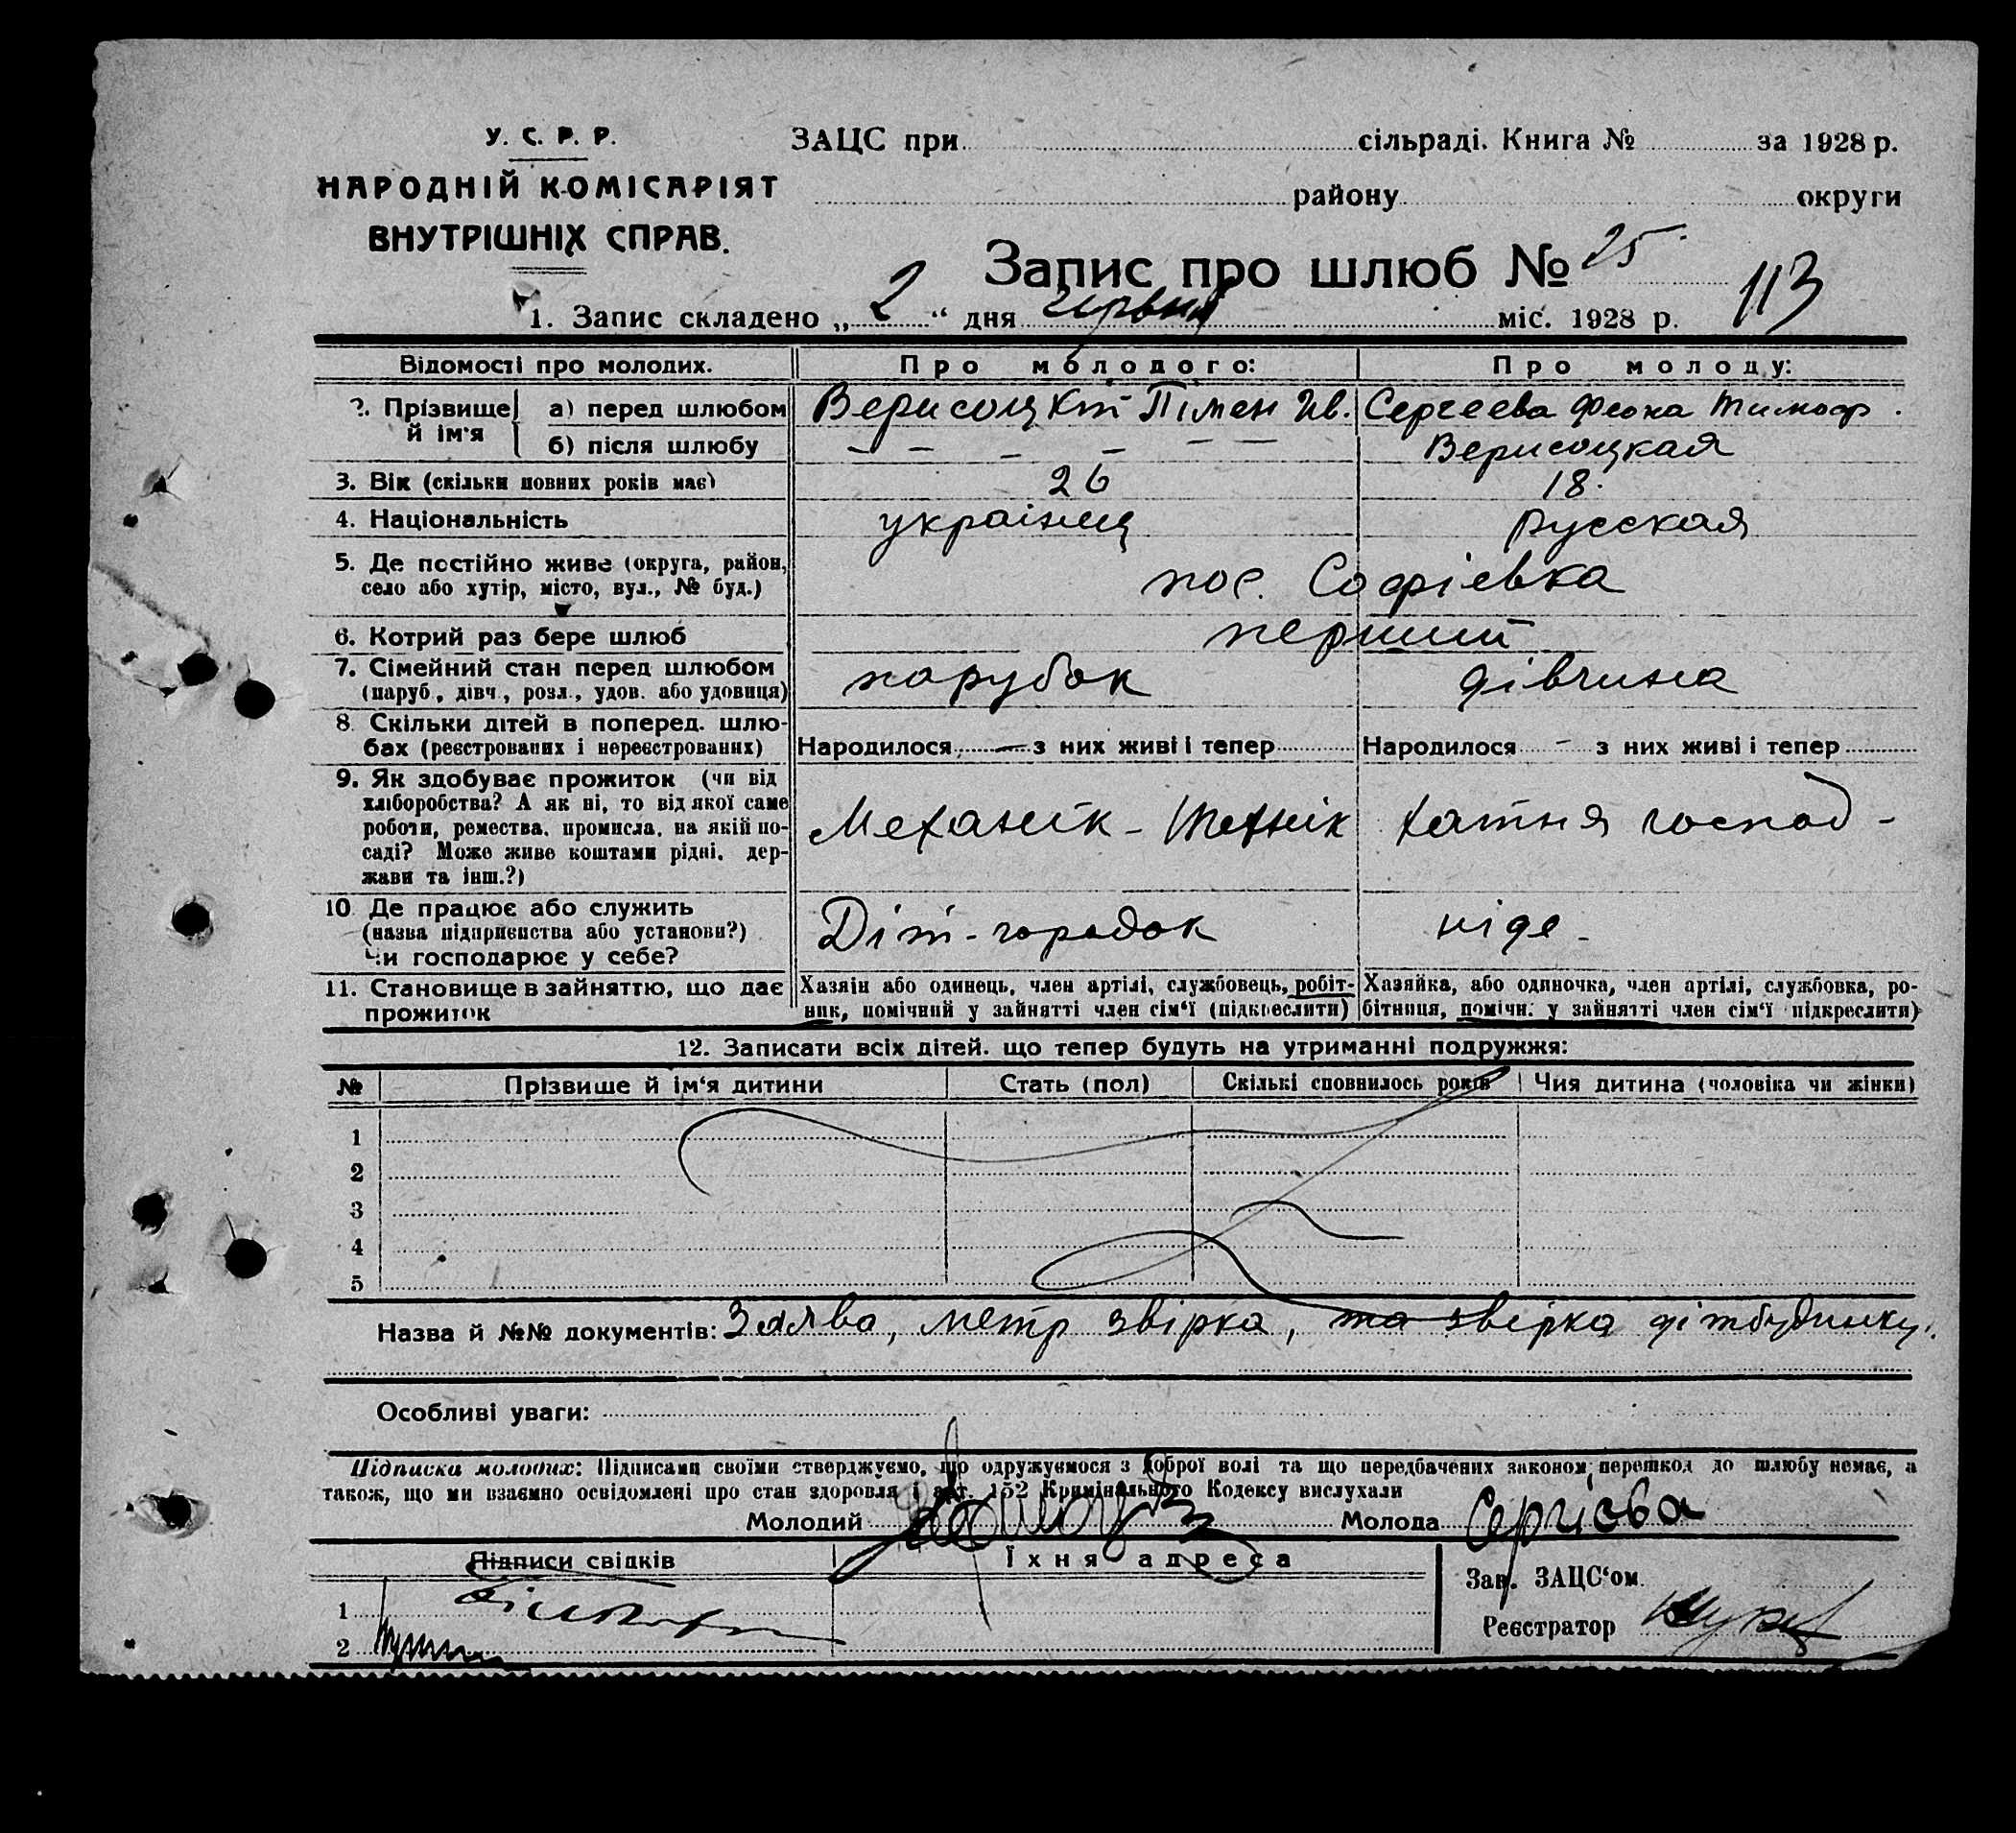 У. С. Р. Р.
НАРОДНІЙ КОМІСАРІЯТ
ВНУТРІШНІХ СПРАВ.
ЗАЦС при сільраді. Книга № за 1928 р.
району округи
Запис про шлюб № 25
113
1. Запис складено „ 2 “ дня червня міс. 1928 р.
Відомості про молодих. Про молодого: Про молоду:
2. Прізвище й ім'я а) перед шлюбом Верисоцкій Пімен Ив. Сергеева Феона Тимоф.
б) після шлюбу — — — — — — Верисоцкая
3. Вік (скільки повних років має) 26 18.
4. Національність українец русская
5. Де постійно живе (округа, район,
село або хутір, місто, вул., № буд.) пос. Софіевка
6. Котрий раз бере шлюб перший
7. Сімейний стан перед шлюбом
(паруб., дівч., розл., удов. або удовиця) парубок дівчина
8. Скільки дітей в поперед. шлю-
бах (реєстрованих і нереєстрованих) Народилося — з них живі і тепер Народилося - з них живі і тепер
9. Як здобуває прожиток (чи від
хліборобства? А як ні, то від якої саме
роботи, ремества, промисла, на якій по-
саді? Може живе коштами рідні, дер-
жави та інш.?) Механік - Технік хатня господ -
10 Де працює або служить
(назва підприємства або установи?)
Чи господарює у себе? Діт-городок ніде -
11. Становище в зайняттю, що дає
прожиток
Хазяїн або одинець, член артілі, службовець, робіт-
ник, помічний у зайнятті член сім'ї (підкреслити)
Хазяйка, або одиночка, член артілі, службовка, ро-
бітниця, помічн. у зайнятті член сім'ї підкреслити)
12. Записати всіх дітей, що тепер будуть на утриманні подружжя:
№ Прізвище й ім'я дитини Стать (пол) Скількі сповнилось років Чия дитина (чоловіка чи жінки)
1
2
3
4
5
Назва й №№ документів: Заява, метр звірка, та звірка дітбудинку.
Особливі уваги:
Підписка молодих: Підписами своїми стверджуємо, що одружуємося з доброї волі та що передбачених законом перешкод до шлюбу немає, а
також, що ми взаємно освідомлені про стан здоровля і арт. 152 Кримінального Кодексу вислухали
Молодий Молода Сергієва
Підписи свідків Їхня адреса
Зав. ЗАЦС'ом
1
Реєстратор
2